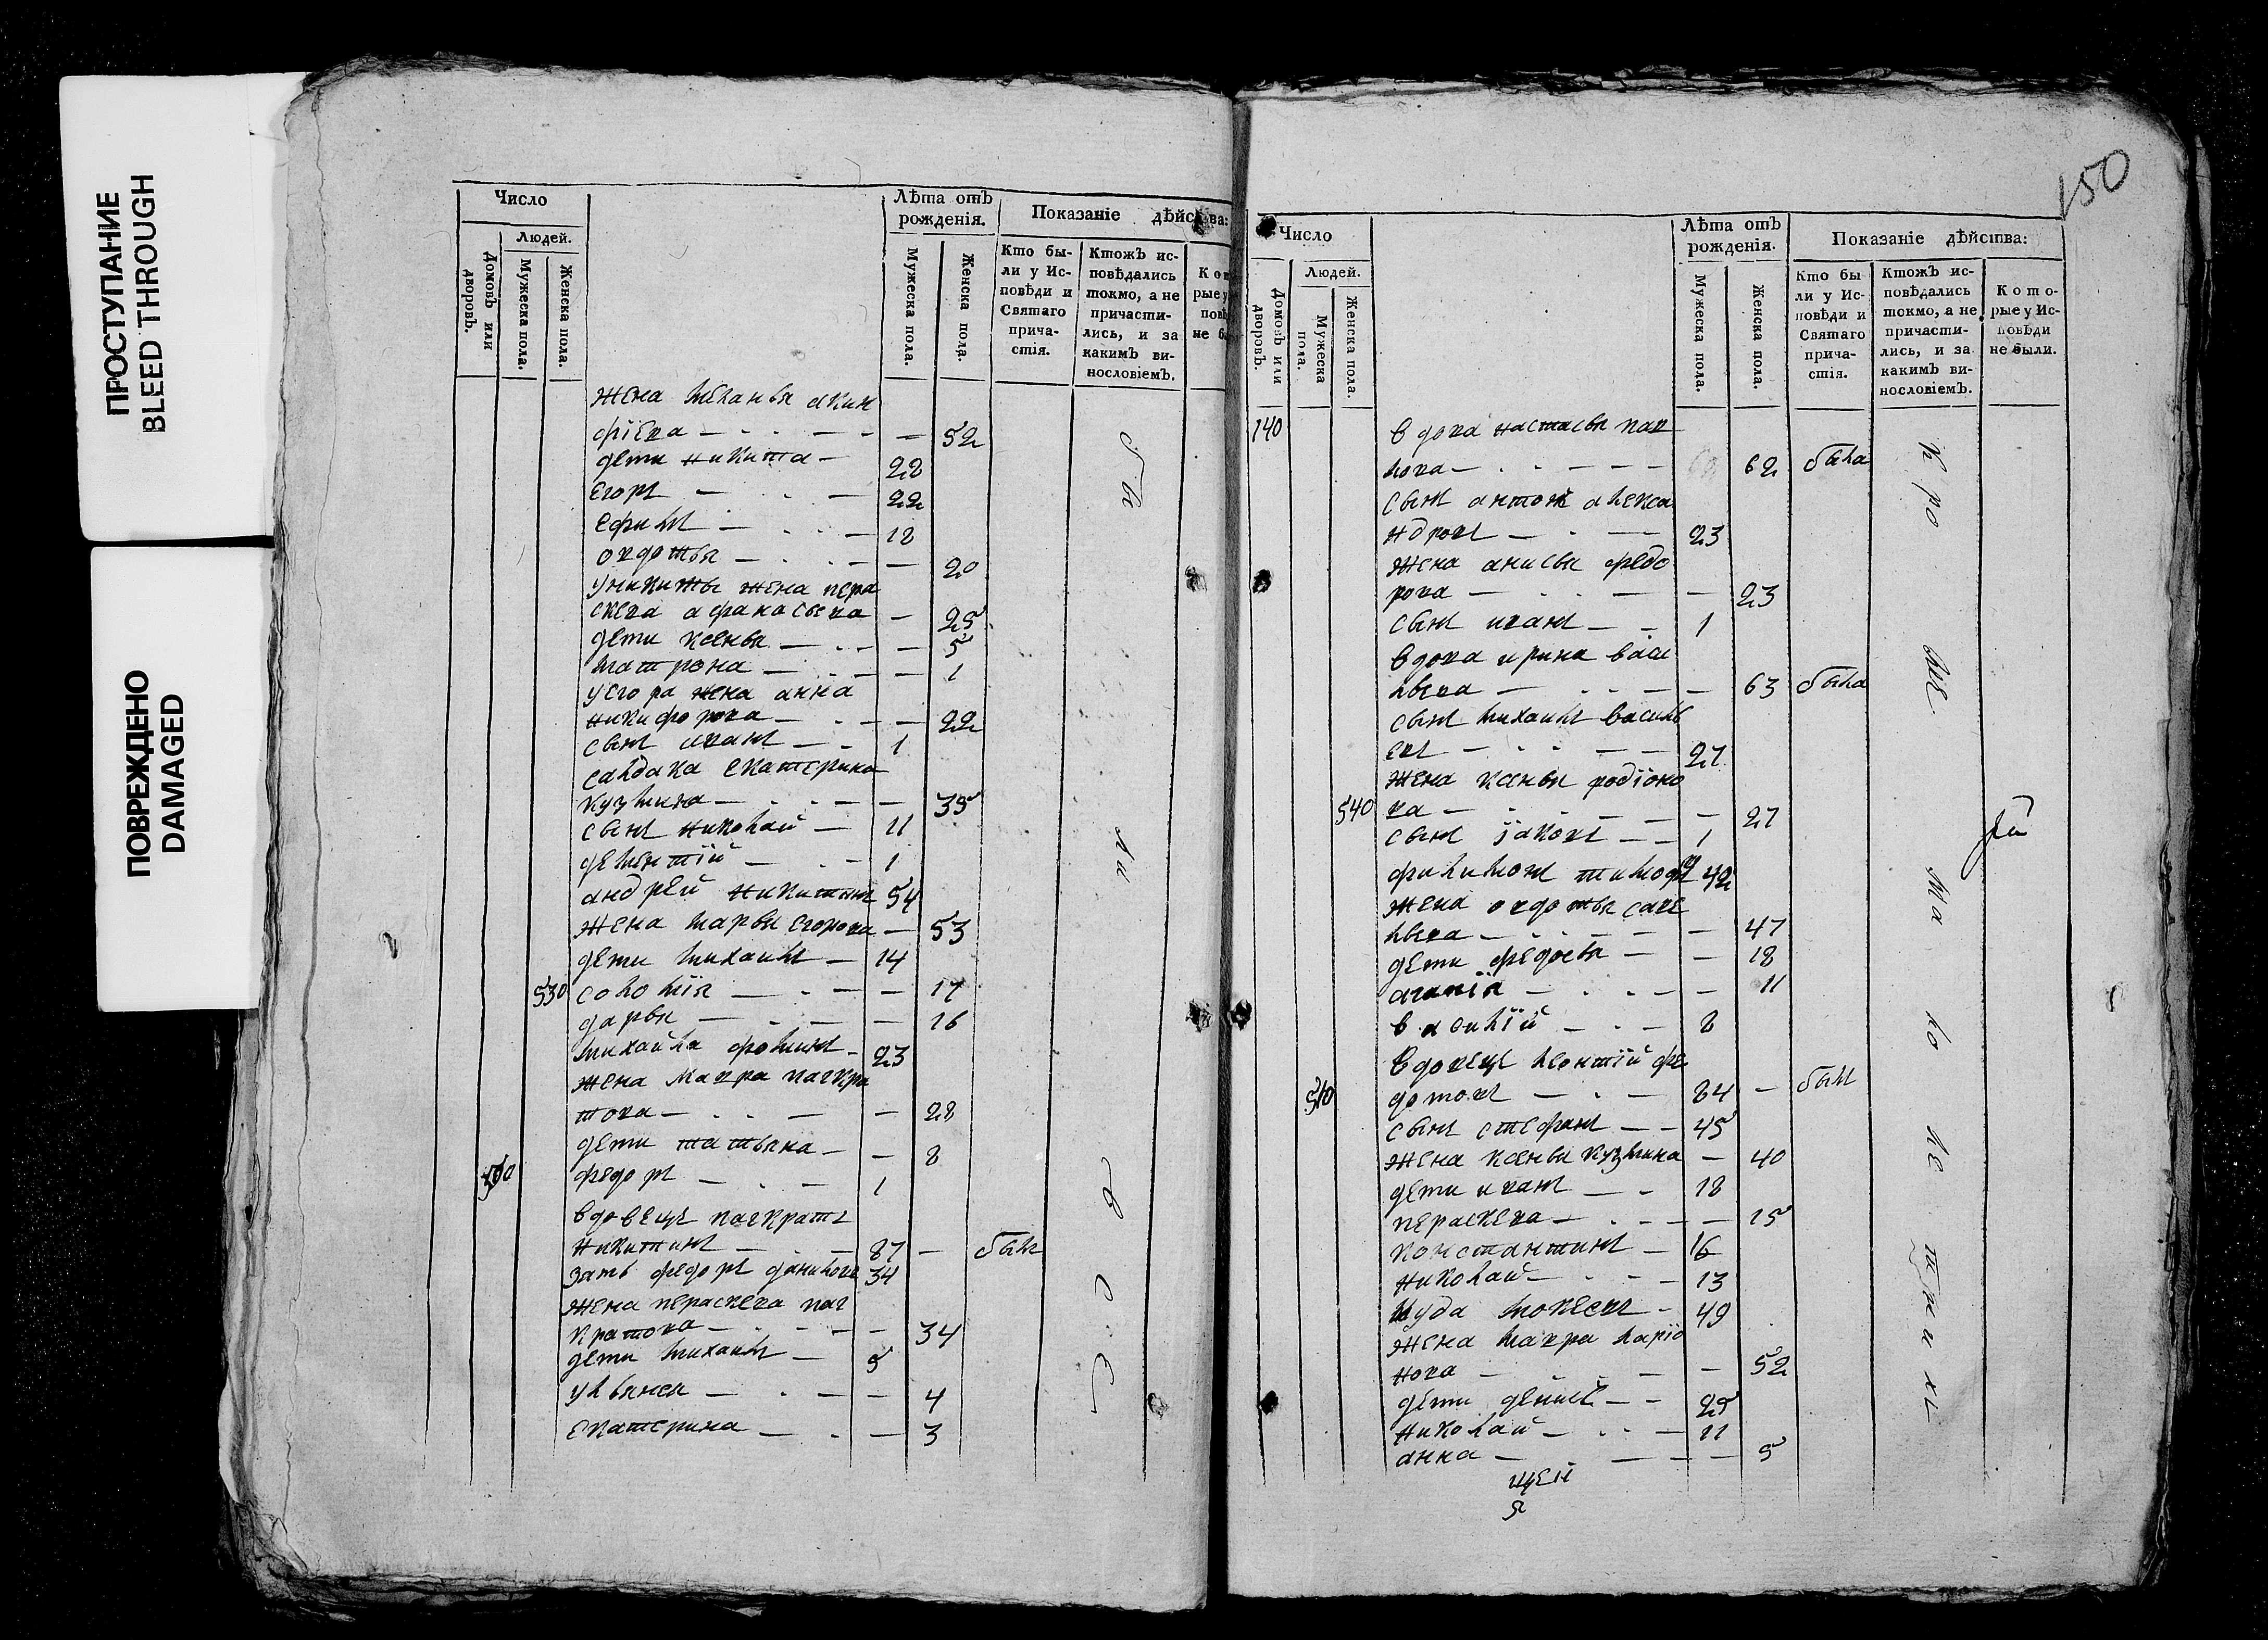 ПРОСТУПАНИЕ
BLEED THROUGH
ПОВРЕЖДЕНО
DAMAGED
Число
Людей.
Домовъ или дворовъ.
Мужеска пола.
Женска пола.
Лѣта отъ рожденія.
Мужеска пола.
Женска пола.
Показаніе дѣйства:
Кто бы-
ли у Ис-
повѣди и
Святаго
прича-
стія.
Ктожъ ис-
повѣдались
токмо, а не
причасти-
лись, и за
какимъ ви-
нословіемъ.
жена меланья акин
фіева 52
дети никита 28
егоръ 22
ефимъ 18
овдотья 20
у никиты жена пера
скева афанасьева 25
дети ксенья 5
матрона 1
у егора жена анна
никифорова 22
сынъ иванъ 1
салдака екатерина
кузмина 35
сынъ николай 11
дементій 1
андрей никитинъ 54
жена марья егорова 53
дети михаилъ 14
530 соломія 17
дарья 16
михайла фоминъ 23
жена мавра панкра
това 28
дети татьяна 8
федоръ 1
вдовецъ панкратъ
никитинъ 87 былъ
зять федоръ данилова 34
жена пераскева пан
кратова 34
дети михаилъ 5
ульянея 4
екатерина 3
150
Число
Людей.
Домовъ или дворовъ.
Мужеска пола.
Женска пола.
Лѣта отъ рожденія.
Мужеска пола.
Женска пола.
Показаніе дѣйства:
Кто бы
ли у Ис-
повѣди и
Святаго
прича-
стія.
Ктожъ ис-
повѣдались
токмо, а не
причасти-
лись, и за
какимъ ви-
нословіемъ.
Кото-
рые у Ис-
повѣди
не были.
140 вдова настасья пав
лова 62 была
сынъ антонъ алекса
ндровъ 23
жена анисья федо
рова 23
сынъ иванъ 1
вдова ирина васи
льева 63 была
сынъ михаилъ василь
евъ 27
жена ксенья родіоно
540 ва 27
сынъ іаковъ 1
филимонъ тимоф 42
жена овдотья саве
льева 47
дети федосья 18
агапія 11
василій 8
вдовецъ леонтій фе
дотовъ 84 былъ
сынъ стефанъ 45
жена ксенья кузмина 40
дети иванъ 18
пераскева 15
константинъ 16
николай 13
иуда мокеевъ 49
жена мавра ларіо
нова 52
дети денисъ 25
николай 11
анна 5